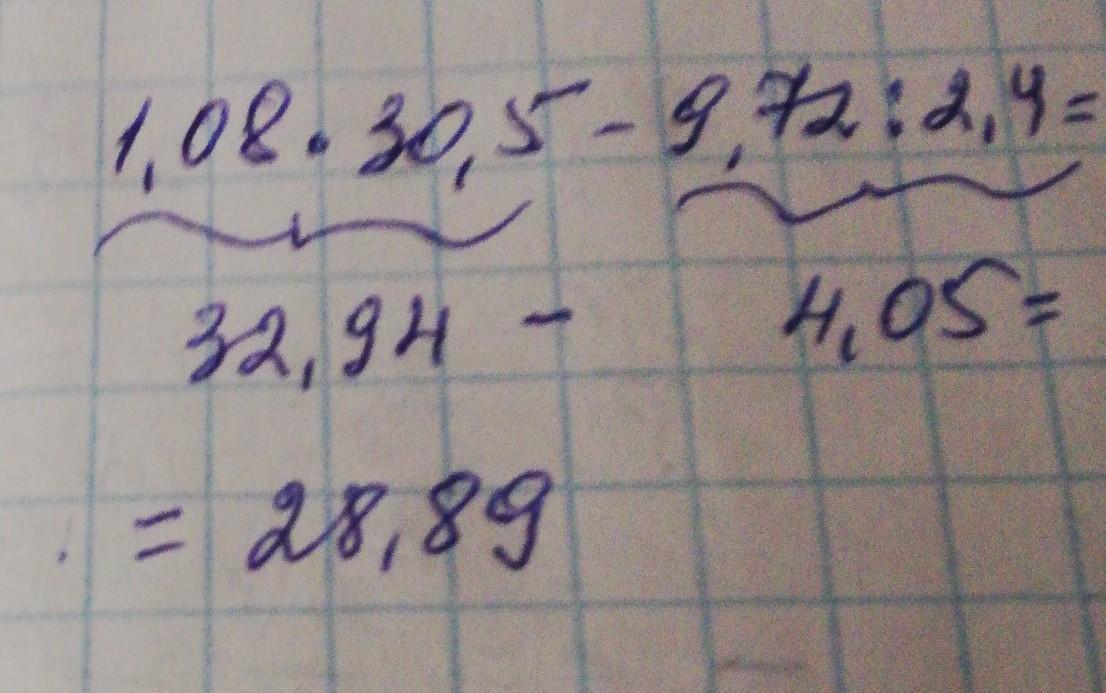 1,08 · 30,5 - 9,72 : 2,4 =
32,94 - 4,05 =
= 28,89